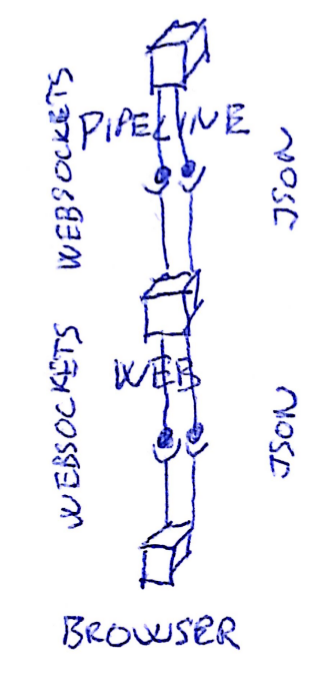 PIPELINE
WEBSOCKETS
JSON
WEB
WEBSOCKETS
JSON
BROWSER